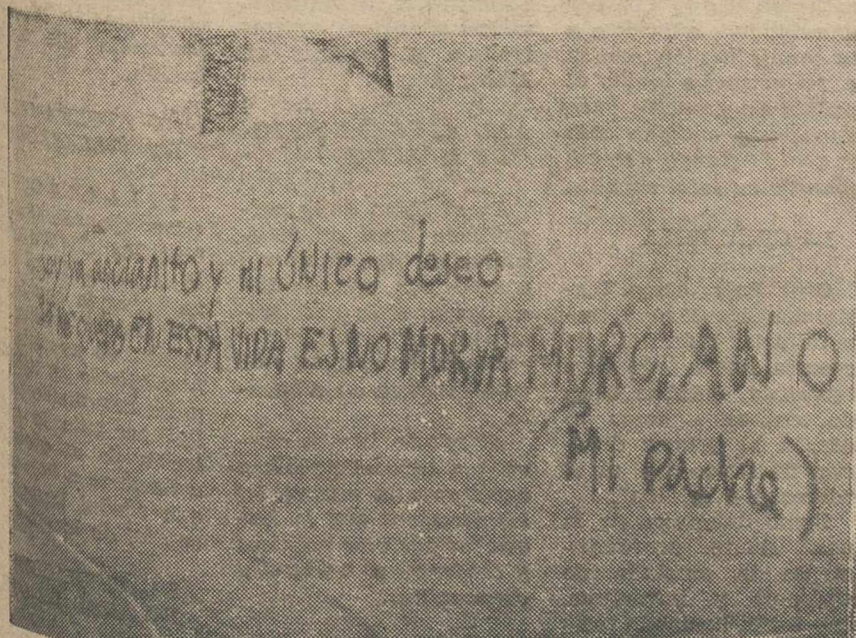 soy ya ancianito y mi ÚNICO deseo
QUE ME QUEDA EN ESTA VIDA ES NO MORIR MURCIANO
(Mi Padre)